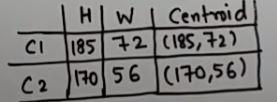 H W Centroid
C1 185 72 (185,72)
C2 170 56 (170,56)